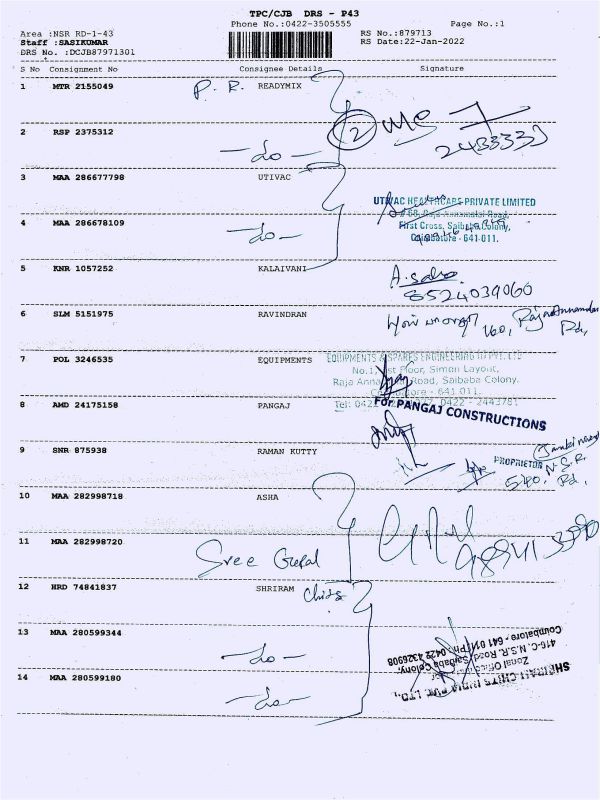 TPC/CJB DRS - P43
Phone No.:0422-3505555 Page No.:1
Area :NSR RD-1-43 RS No.:879713
Staff :SASIKUMAR RS Date:22-Jan-2022
DRS No. :DCJB87971301
S No Consignment No Consignee Details Signature
1 MTR 2155049 P. R. READYMIX
2 RSP 2375312 -do- 2
3 MAA 286677798 UTIVAC
UTIVAC HEALTHCARE PRIVATE LIMITED
# 68, Raja Annamalai Road,
First Cross, Saibaba Colony,
Coimbatore - 641 011.
4 MAA 286678109 -do-
5 KNR 1057252 KALAIVANI
8524039060
6 SLM 5151975 RAVINDRAN
160,
Rd,
7 POL 3246535 EQUIPMENTS
No.1, 1st Floor, Simon Layout,
Raja Annamalai Road, Saibaba Colony.
Coimbatore - 641 011.
8 AMD 24175158 PANGAJ
For PANGAJ CONSTRUCTIONS
PROPRIETOR
9 SNR 875938 RAMAN KUTTY
N.S.R.
Rd,
10 MAA 282998718 ASHA
11 MAA 282998720 Sree Gopal
12 HRD 74841837 SHRIRAM Chits
13 MAA 280599344 -do-
14 MAA 280599180 -do-
SHRIRAM CHITS INDIA PVT LTD.,
416-C, N.S.R. Road, Saibaba Colony,